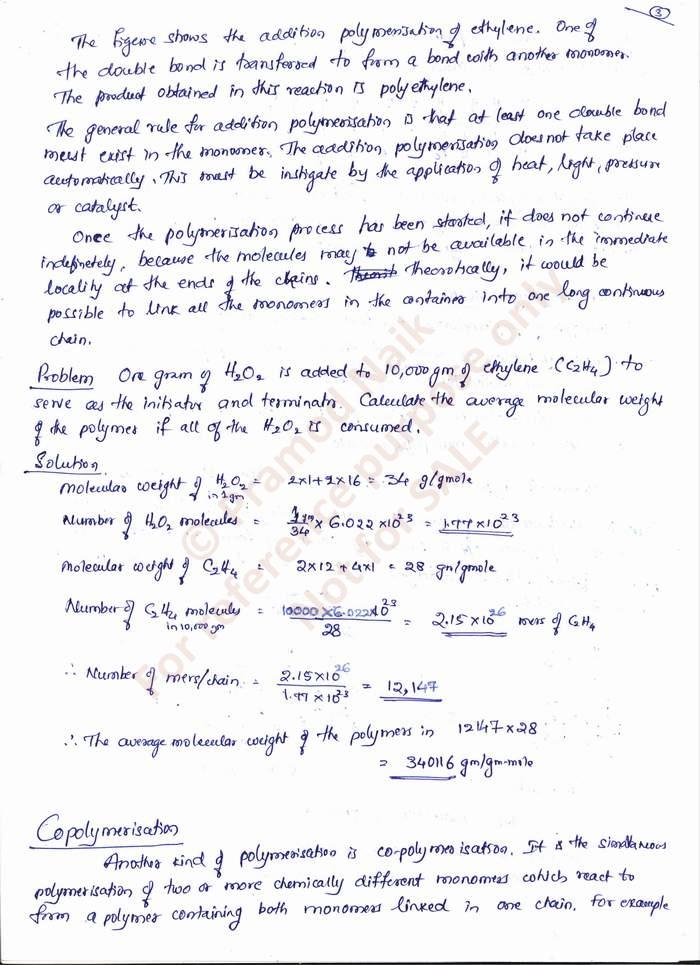 3
The figure shows the addition polymerisation of ethylene. One of
the double bond is transferred to from a bond with another monomer.
The product obtained in this reaction is polyethylene.
The general rule for addition polymerisation is that at least one double bond
must exist in the monomer. The addition polymerisation does not take place
automatically. This must be instigate by the application of heat, light, pressure
or catalyst.
Once the polymerisation process has been started, it does not continue
indefinetely, because the molecules may not be available in the immediate
locality at the ends of the chains. Theorotically, it would be
possible to link all the monomers in the container into one long continuous
chain.
Problem One gram of H2O2 is added to 10,000 gm of ethylene (C2H4) to
serve as the initiator and terminator. Calculate the average molecular weight
of the polymer if all of the H2O2 is consumed.
Solution
Molecular weight of H2O2 = 2×1+2×16 = 34 g/gmole
in 1gm
Number of H2O2 molecules = 1gm/34 × 6.022×10^23 = 1.77×10^23
Molecular weight of C2H4 = 2×12+4×1 = 28 gm/gmole
Number of C2H4 molecules = 10000×6.022×10^23/28 = 2.15×10^26 mers of C2H4
in 10,000 gm
∴ Number of mers/chain = 2.15×10^26/1.77×10^23 = 12,147
∴ The average molecular weight of the polymers in 12147×28
= 340116 gm/gm-mole
Copolymerisation
Another kind of polymerisation is co-polymerisation. It is the simultaneous
polymerisation of two or more chemically different monomers which react to
form a polymer containing both monomers linked in one chain. For example
© Pramod Naik
For reference purpose only
Not for SALE